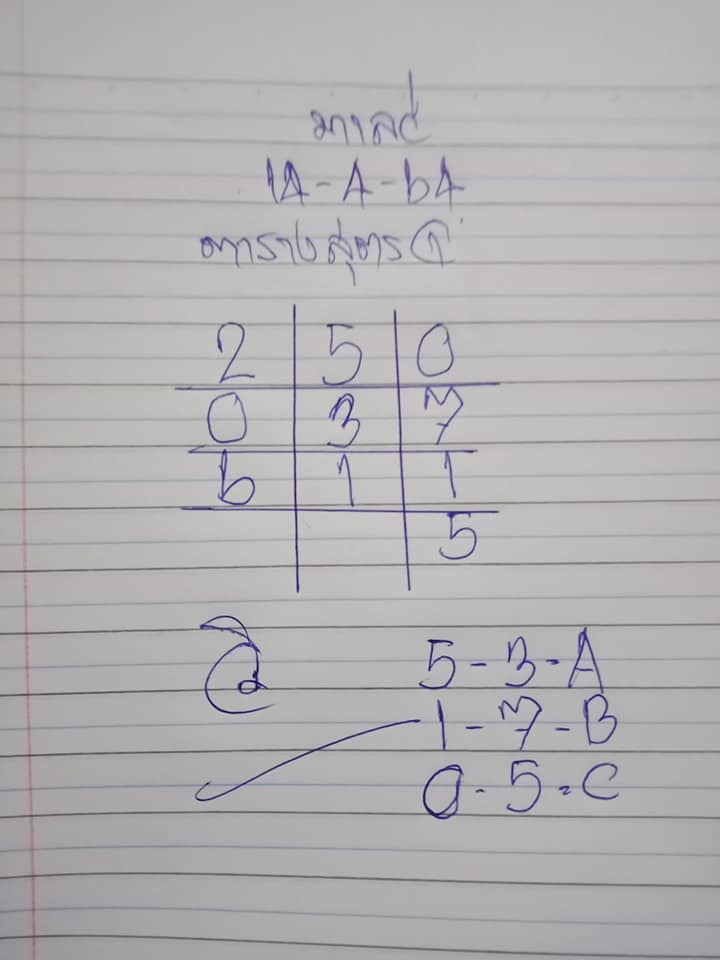 มาเลย์
1A-A-6A
ตารางสูตร ①
2 5 0
0 3 7
6 1 1
5
5-3-A
1-7-B
0-5-C